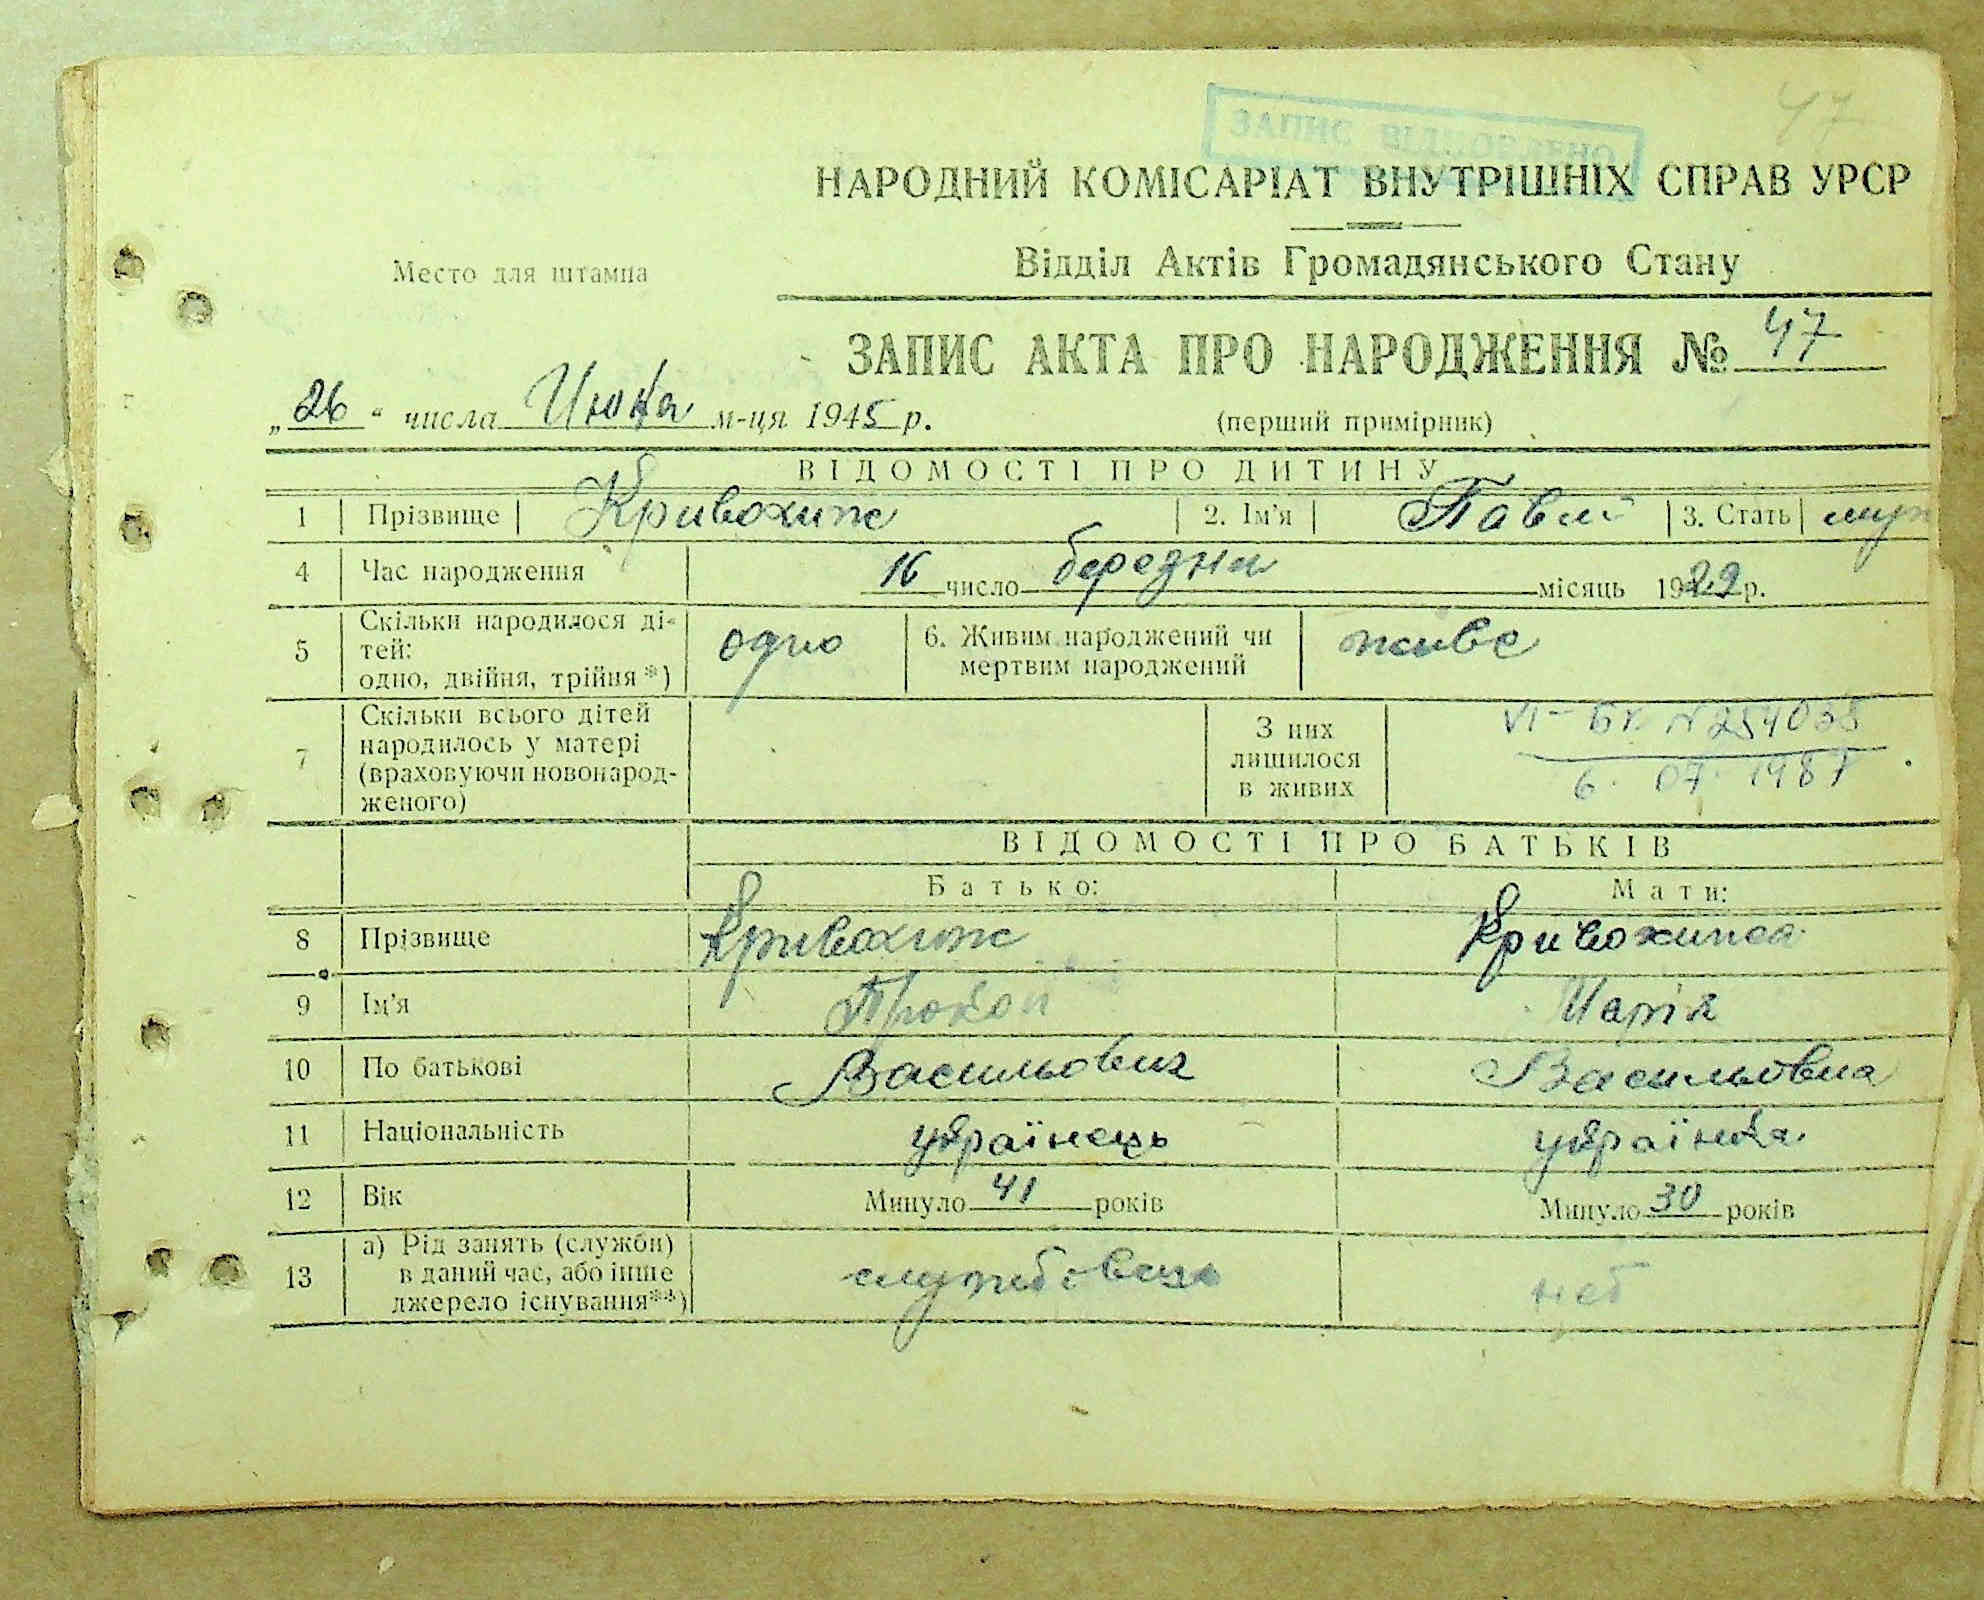 47
ЗАПИС ВІДНОВЛЕНО
НАРОДНИЙ КОМІСАРІАТ ВНУТРІШНІХ СПРАВ УРСР
Відділ Актів Громадянського Стану
Место для штампа
ЗАПИС АКТА ПРО НАРОДЖЕННЯ № 47
„26" числа м-ця 1945 р.
(перший примірник)
ВІДОМОСТІ ПРО ДИТИНУ
1 Прізвище Кривохиже 2. Ім'я Павло 3. Стать муж
4 Час народження 16 число березня місяць 1929 р.
5 Скільки народилося ді-
тей:
одно, двійня, трійня *) одно 6. Живим народжений чи
мертвим народжений живе
7 Скільки всього дітей
народилось у матері
(враховуючи новонарод-
женого)
З них
лишилося
в живих
VI-БК N 254038
6. 07. 1987
ВІДОМОСТІ ПРО БАТЬКІВ
Батько: Мати:
8 Прізвище Кривохиже Кривохижа
9 Ім'я Прокоп Марія
10 По батькові Васильович Васильовна
11 Національність українець українка
12 Вік Минуло 41 років Минуло 30 років
13 а) Рід занять (служби)
в даний час, або інше
джерело існування**) службовець нет